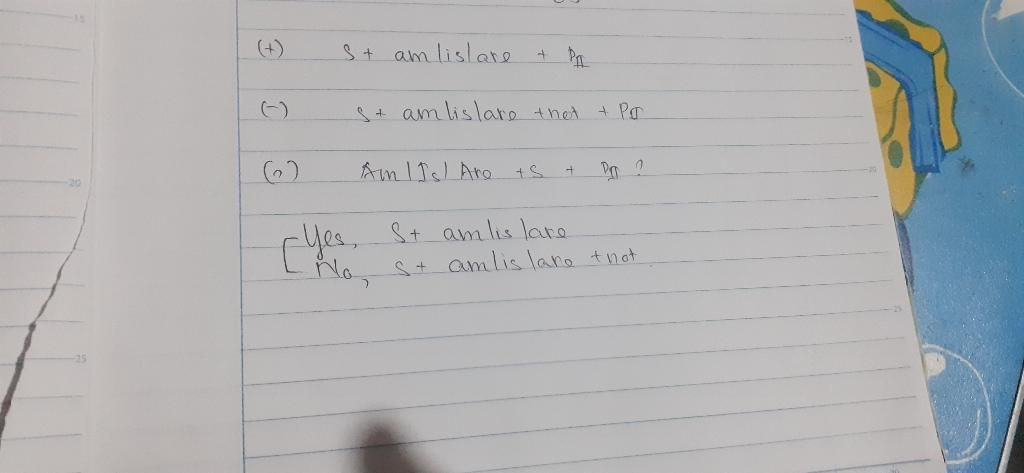 (+) S + am | is | are + PII
(-) S + am | is | are + not + PII
(?) Am | Is | Are + S + PII ?
Yes, S + am | is | are
No, S + am | is | are + not